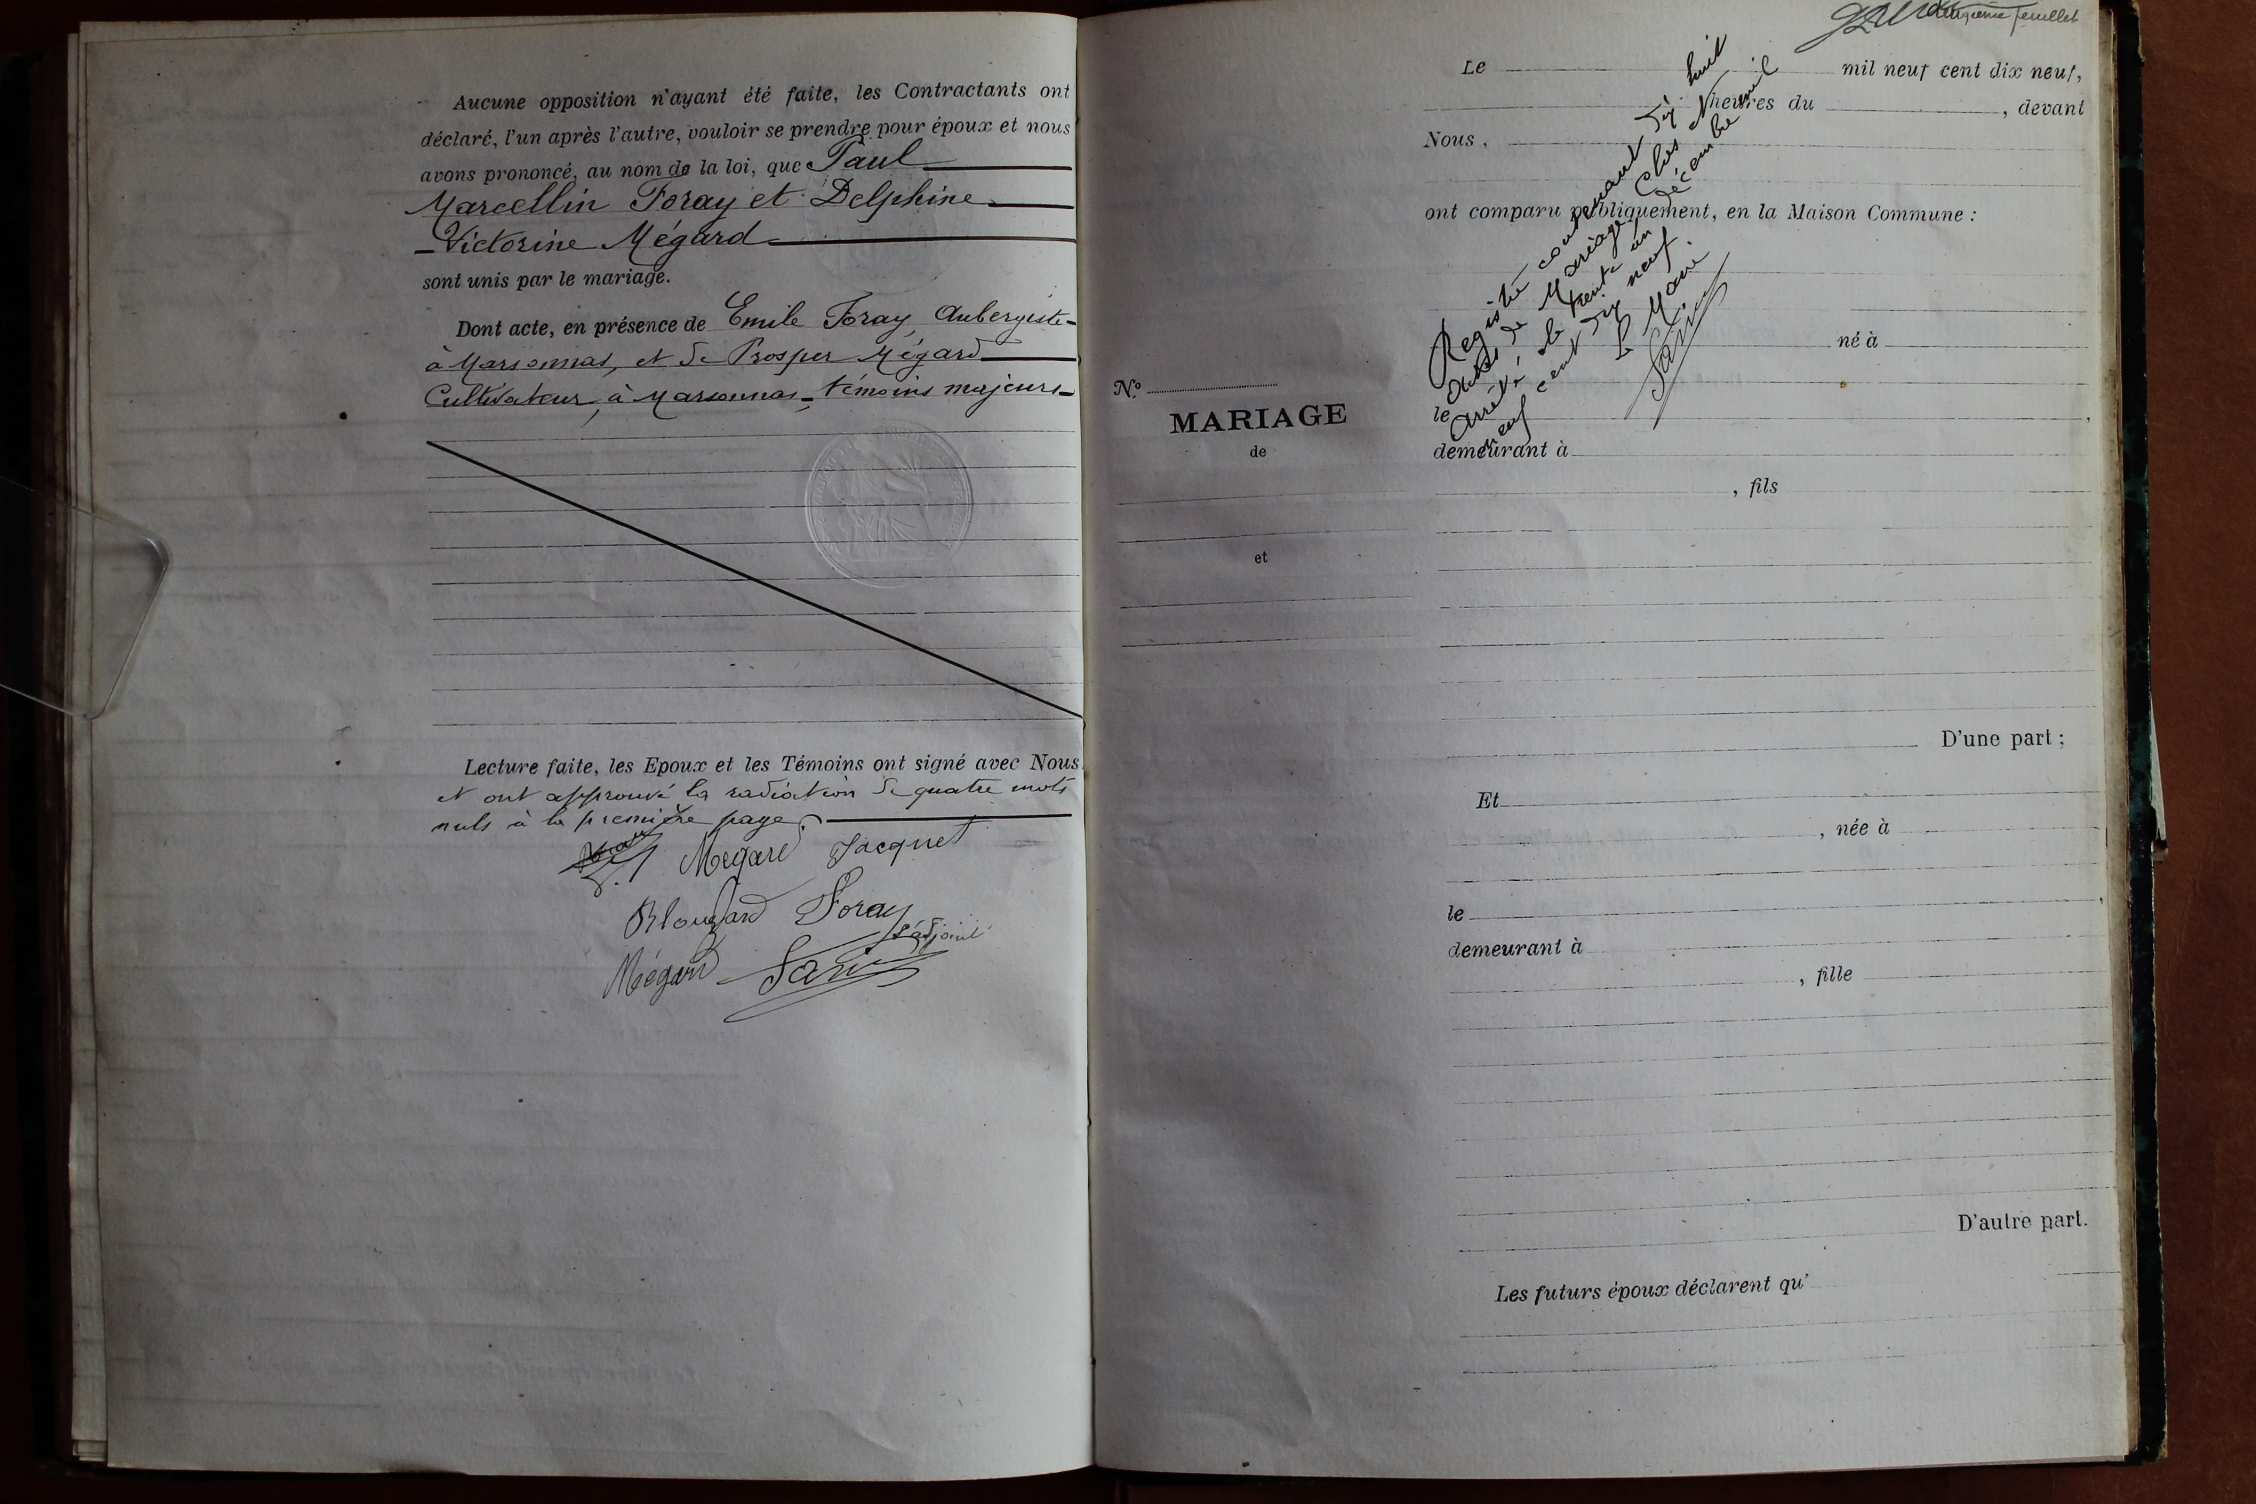 Aucune opposition n'ayant été faite, les Contractants ont
déclaré, l'un après l'autre, vouloir se prendre pour époux et nous
avons prononcé, au nom de la loi, que Paul
Marcellin Foray et Delphine
Victorine Mégard
sont unis par le mariage.
Dont acte, en présence de Emile Foray, Aubergiste
à Marsonnas, et de Prosper Mégard
Cultivateur, à Marsonnas, témoins majeurs
Lecture faite, les Epoux et les Témoins ont signé avec Nous
et ont approuvé la radiation de quatre mots
nuls à la première page.
Mégard Jacquet
Blouzard Foray
l'adjoint
Mégard Savin
feuillet
Le mil neuf cent dix neuf,
heures du , devant
Nous,
ont comparu publiquement, en la Maison Commune :
Registre contenant dix huit
actes de Mariage, Clos et
arrêté le trente un décembre mil
neuf cent dix neuf.
Le Maire
Savin
né à
le ,
demeurant à
, fils
No
MARIAGE
de
et
D'une part ;
Et
, née à
le
demeurant à
, fille
D'autre part.
Les futurs époux déclarent qu'